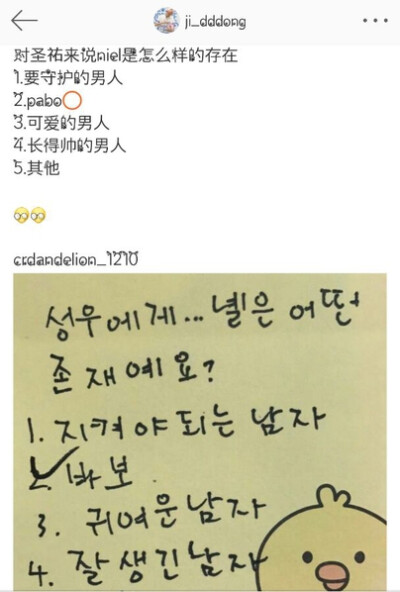 ji_dddong
对圣祐来说niel是怎么样的存在
1.要守护的男人
2.pabo⭕
3.可爱的男人
4.长得帅的男人
5.其他
crdandelion_1210
성우에게... 녤은 어떤
존재예요?
1. 지켜야 되는 남자
2. 바보
3. 귀여운 남자
4. 잘생긴 남자